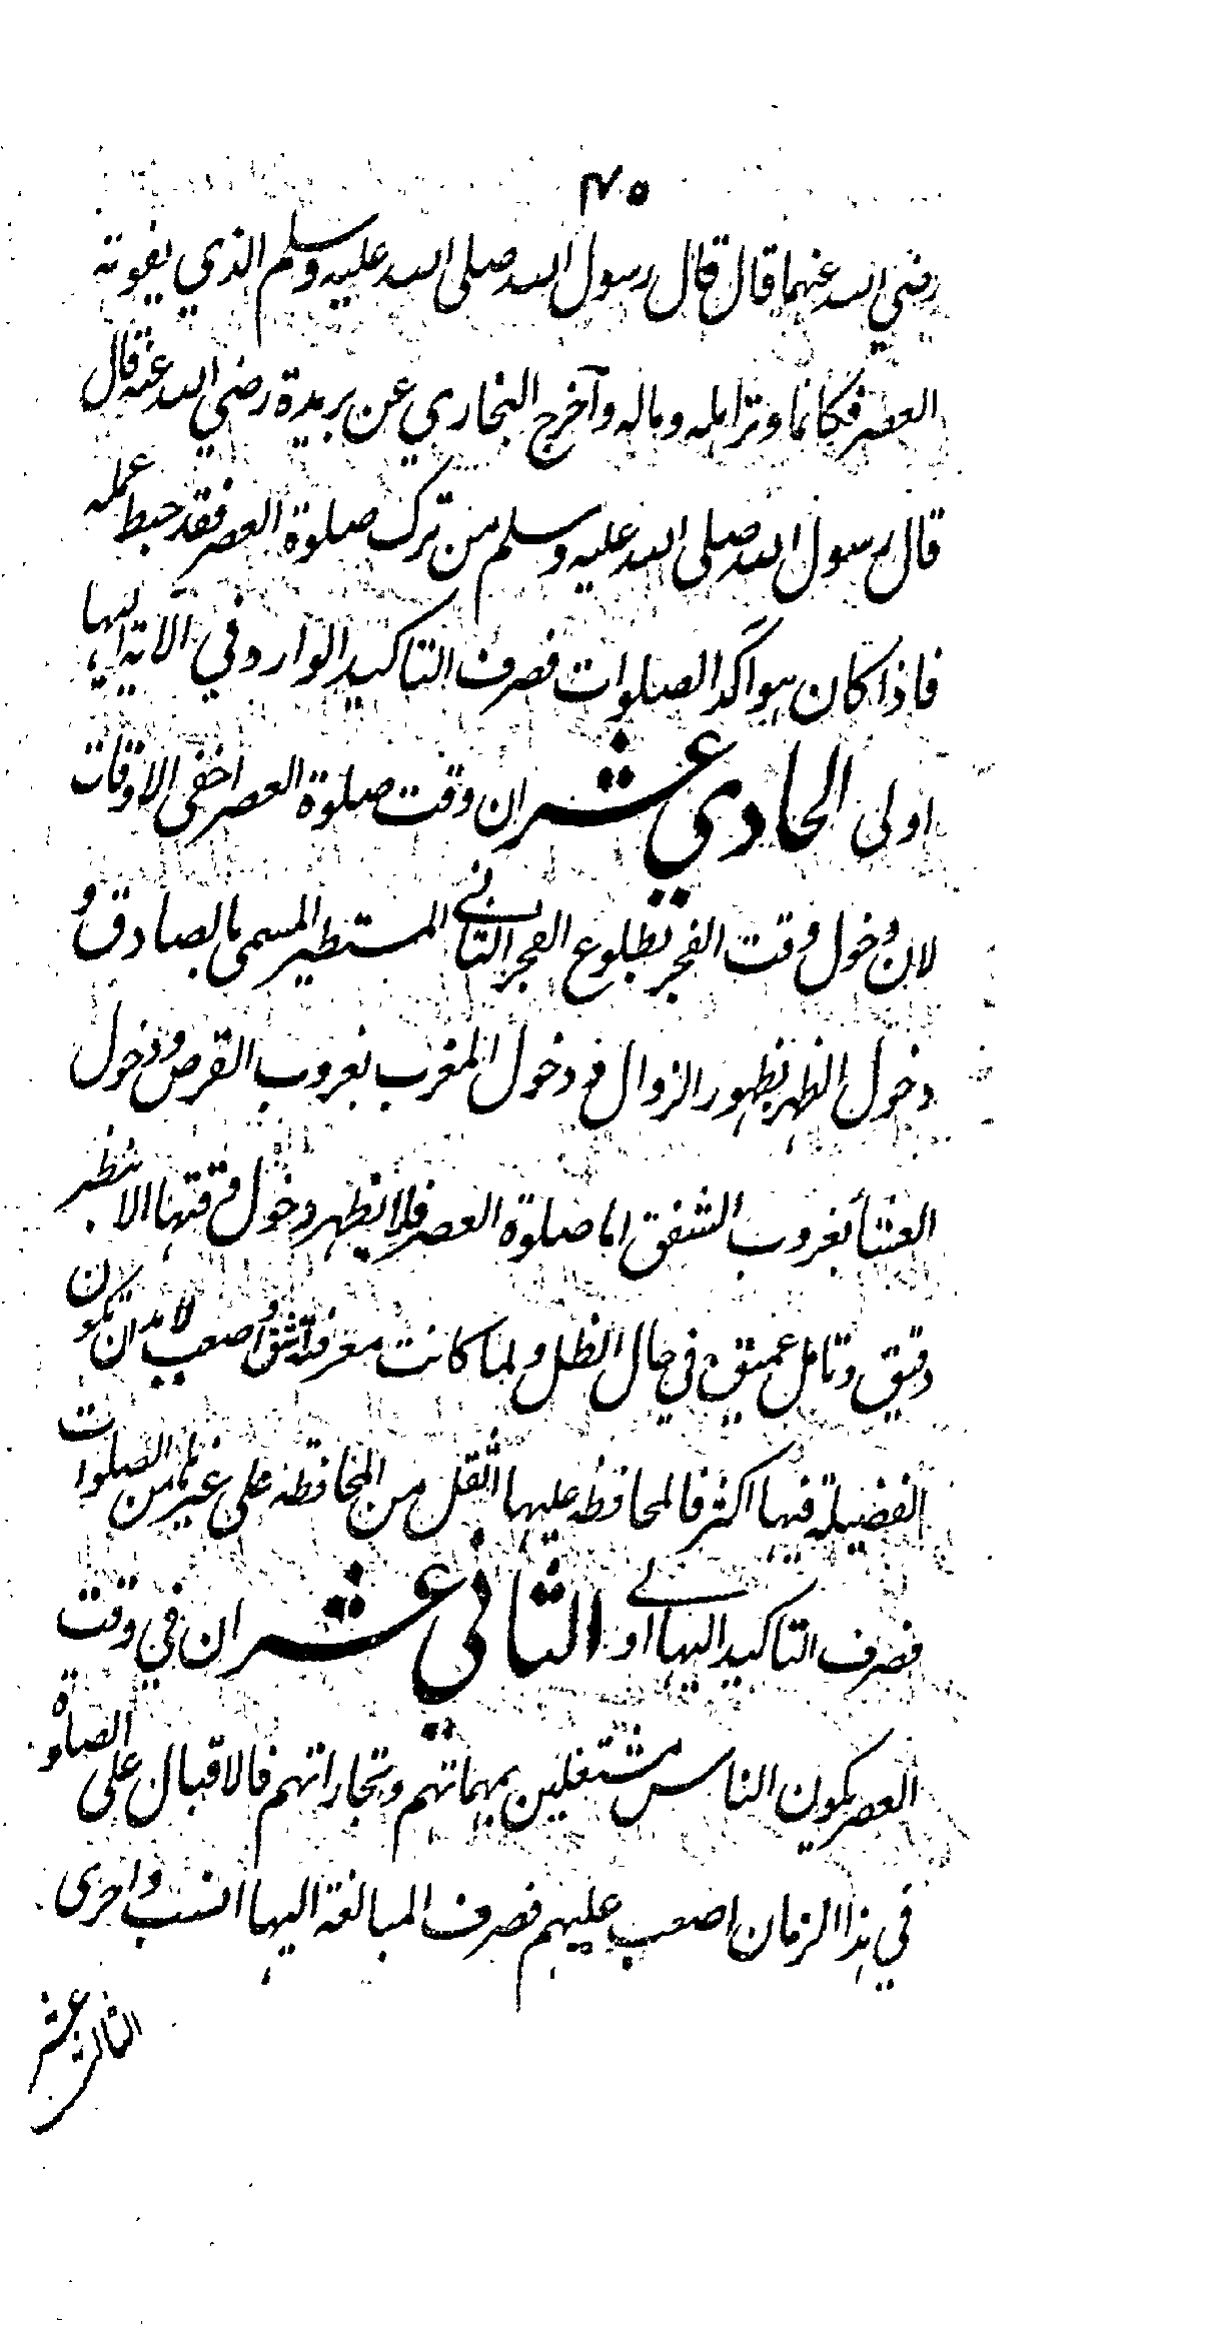 ٣٧٥
رضي الله عنهما قال قال رسول الله صلى الله عليه وسلم الذي يفوته
العصر فكانما وتر اهله وماله وآخرج البخاري عن بريدة رضي الله عنه قال
قال رسول الله صلى الله عليه وسلم من ترك صلوة العصر فقد حبط عمله
فاذا كان هو آكد الصلوات فصرف التاكيد الوارد في الآية اليها
اولى الحادي عشر ان وقت صلوة العصر اخفى الاوقات
لان دخول وقت الفجر بطلوع الفجر الثاني المستطير المسمى بالصادق و
دخول الظهر بظهور الزوال و دخول المغرب بغروب القرص و دخول
العشأ بغروب الشفق اما صلوة العصر فلا يظهر دخول وقتها الا بنظر
دقيق وتامل عميق في حال الظل ولما كانت معرفته اشق و اصعب لا بد ان تكون
الفضيلة فيها اكثر فالمحافظة عليها اثقل من المحافظة على غيرها من الصلوات
فصرف التاكيد اليها اولى الثاني عشر ان في وقت
العصر يكون الناس مشتغلين بمهماتهم وتجاراتهم فالاقبال على الصلوة
في هذا الزمان اصعب عليهم فصرف المبالغة اليها انسب واحرى
الثالث عشر